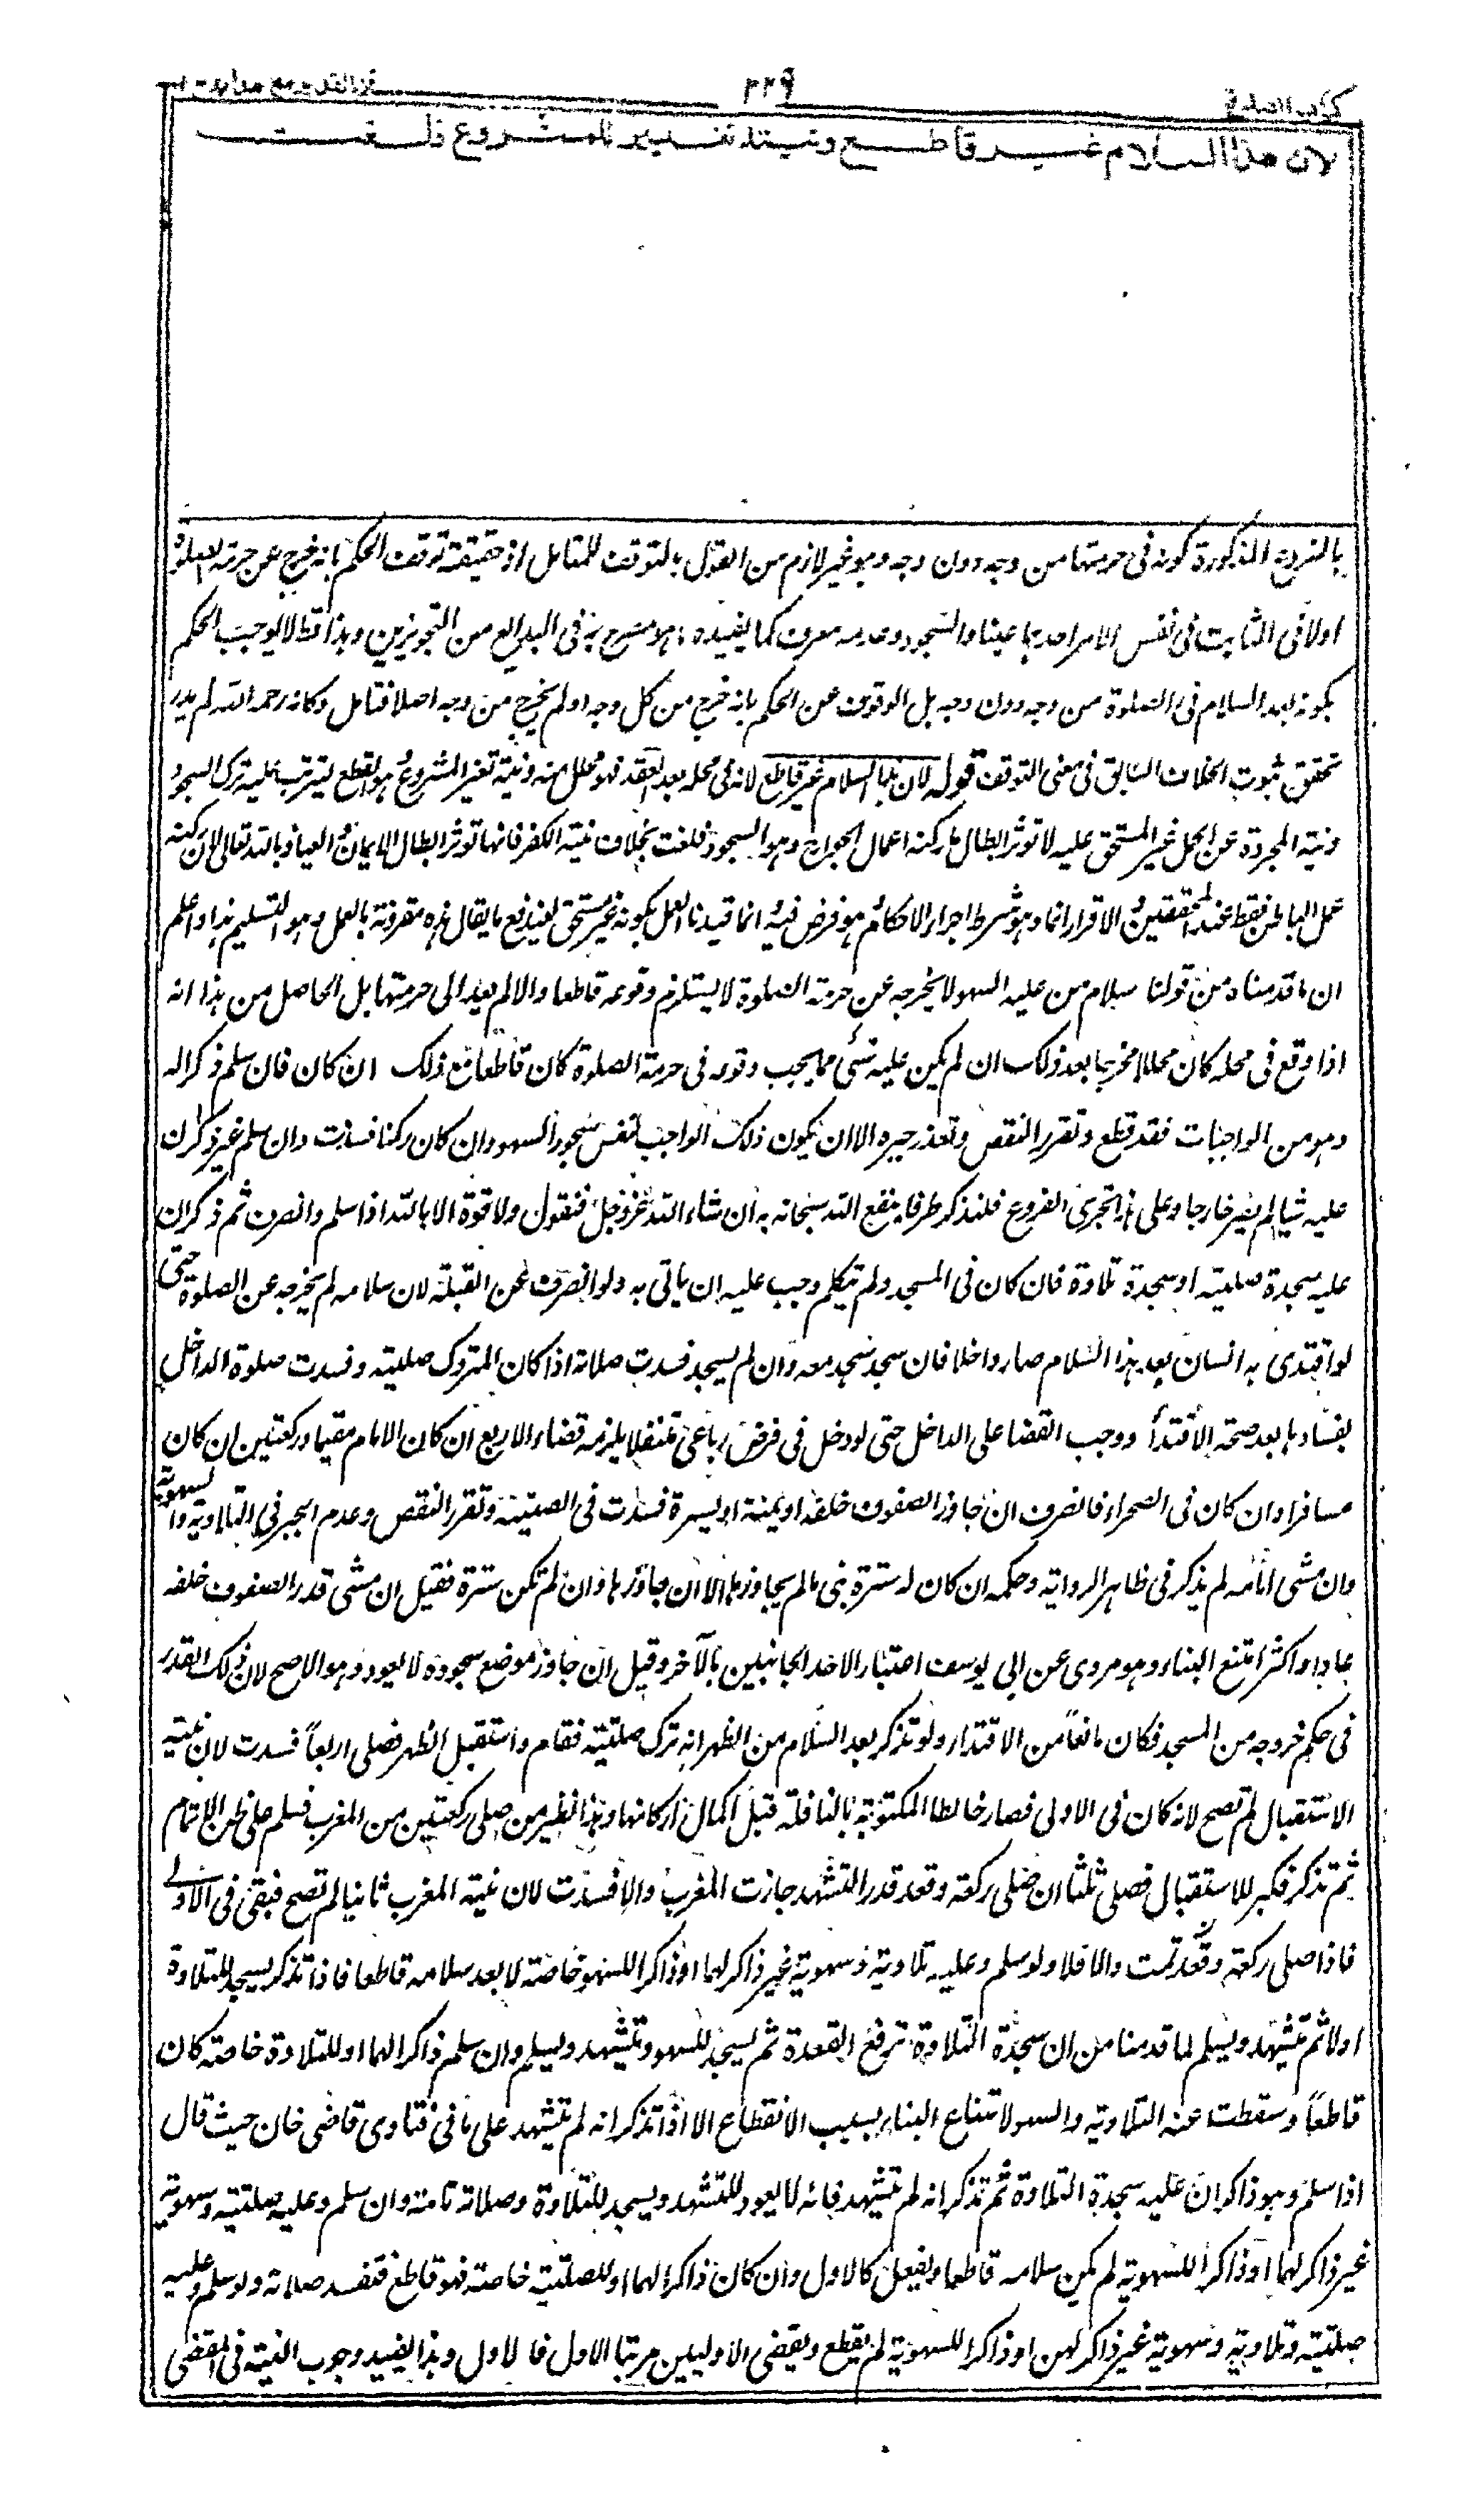 كتاب الصلوة
٢٢٩
فتح القدير مع هداية
لان هذا السلام غير قاطع ونيته تغيير المشروع فلغت
بالفروع المذكورة كونه فى حرمتها من وجه دون وجه وهو غير لازم من القول بالتوقف للمتأمل اذ حقيقة توقف الحكم بانه خرج عن حرمة الصلوة
اولا فى الثابت فى نفس الامر احدهما عينا والسجود وعدمه معرف كما يفيده ما هو مصرح به فى البدائع من التجويزين وهذا قط لا يوجب الحكم
بكونه بعد السلام فى الصلوة من وجه دون وجه بل الوقوف عن الحكم بانه خرج من كل وجه او لم يخرج من وجه اصلا فتامل وكانه رحمه الله لم يدر
تحقق ثبوت الخلاف السابق فى معنى التوقف قوله لان هذا السلام غير قاطع لانه فى محله بعد القعد فهو محلل منه ونيته تغير المشروع وهو القطع ليترتب عليه ترك السجود
ونيته المجردة عن العمل غير المستحق عليه لا تؤثر ابطال ما ركنه اعمال الجوارح وهو السجود فلغت بخلاف نية الكفر فانها تؤثر ابطال الايمان والعياذ بالله تعالى لان ركنه
عمل الباطن فقط عند المحققين والاقرار انما هو شرط اجراء الاحكام وهو فرض فيه وانما قيدنا العمل بكونه غير مستحق ليندفع ما يقال هذه مقرونة بالعمل وهو التسليم هذا واعلم
ان ما قدمناه من قولنا سلام من عليه السهو لا يخرجه عن حرمة الصلوة لا يستلزم وقوعه قاطعا والا لم يعد الى حرمتها بل الحاصل من هذا انه
اذا وقع فى محله كان محللا مخرجا بعد ذلك ان لم يكن عليه شئ مما يجب وقوعه فى حرمة الصلوة كان قاطعا مع ذلك ان كان فان سلم ذاكرا له
وهو من الواجبات فقد قطع وتقرر النقص وتعذر جبره الا ان يكون ذلك الواجب نفس سجود السهو وان كان ركنا فسدت وان سلم غير ذاكر ان
عليه شيا لم يصر خارجا وعلى هذا تجرى الفروع فلنذكر طرفا ينفع الله سبحانه به ان شاء الله عز وجل فنقول ولا قوة الا بالله اذا سلم وانصرف ثم ذكر ان
عليه سجدة صلبية او سجدة تلاوة فان كان فى المسجد ولم يتكلم وجب عليه ان ياتى به ولو انصرف عن القبلة لان سلامه لم يخرجه عن الصلوة حتى
لو اقتدى به انسان بعد هذا السلام صار داخلا فان سجد سجد معه وان لم يسجد فسدت صلاته اذا كان المتروك صلبية وفسدت صلوة الداخل
بفسادها بعد صحة الاقتدأ ووجب القضا على الداخل حتى لو دخل فى فرض رباعى متنفلا يلزمه قضاء الاربع ان كان الامام مقيما وركعتين ان كان
مسافرا وان كان فى الصحراء فانصرف ان جاوز الصفوف خلفه او يمنة او يسرة فسدت فى الصلبية وتقرر النقص وعدم الجبر فى التلاوية والسهوية
وان مشى امامه لم يذكر فى ظاهر الرواية وحكمه ان كان له سترة بنى ما لم يجاوزها لا ان جاوزها وان لم تكن سترة فقيل ان مشى قدر الصفوف خلفه
عاد او اكثر امتنع البناء وهو مروى عن ابى يوسف اعتبار الاحد الجانبين بالآخر وقيل ان جاوز موضع سجوده لا يعود وهو الاصح لان ذلك القدر
فى حكم خروجه من المسجد فكان مانعاً من الاقتداء ولو تذكر بعد السلام من الظهر انه ترك صلبية فقام واستقبل الظهر فصلى اربعاً فسدت لان نية
الاستقبال لم تصح لانه كان فى الاولى فصار خالطا المكتوبة بالنافلة قبل اكمال اركانها وهذا نظير من صلى ركعتين من المغرب فسلم على ظن الاتمام
ثم تذكر فكبر للاستقبال فصلى ثلثا ان صلى ركعة وقعد قدر التشهد جازت المغرب والا فسدت لان نية المغرب ثانيا لم تصح فبقى فى الاولى
فاذا صلى ركعة وقعد تمت والا فلا ولو سلم وعليه تلاوية وسهوية غير ذاكر لهما او ذاكرا للسهو خاصة لا يعد سلامه قاطعا فاذا تذكر يسجد للتلاوة
اولا ثم تشهد ويسلم لما قدمنا من ان سجدة التلاوة ترفع القعدة ثم يسجد للسهو ويتشهد ويسلم وان سلم ذاكرا لهما او للتلاوة خاصة كان
قاطعاً وسقطت عنه التلاوية والسهو لامتناع البناء بسبب الانقطاع الا اذا تذكر انه لم يتشهد على ما فى فتاوى قاضى خان حيث قال
اذا سلم وهو ذاكر ان عليه سجدة التلاوة ثم تذكر انه لم يتشهد فانه لا يعود للتشهد ويسجد للتلاوة وصلاته تامة وان سلم وعليه صلبية وسهوية
غير ذاكر لهما او ذاكرا للسهوية لم يكن سلامه قاطعا ويفعل كالاول وان كان ذاكرا لهما او للصلبية خاصة فهو قاطع فتفسد صلاته ولو سلم وعليه
صلبية وتلاوية وسهوية غير ذاكر لهن او ذاكرا للسهوية لم يقطع ويقضى الاوليين مرتبا الاول فالاول وهذا يفيد وجوب النية فى المقضى